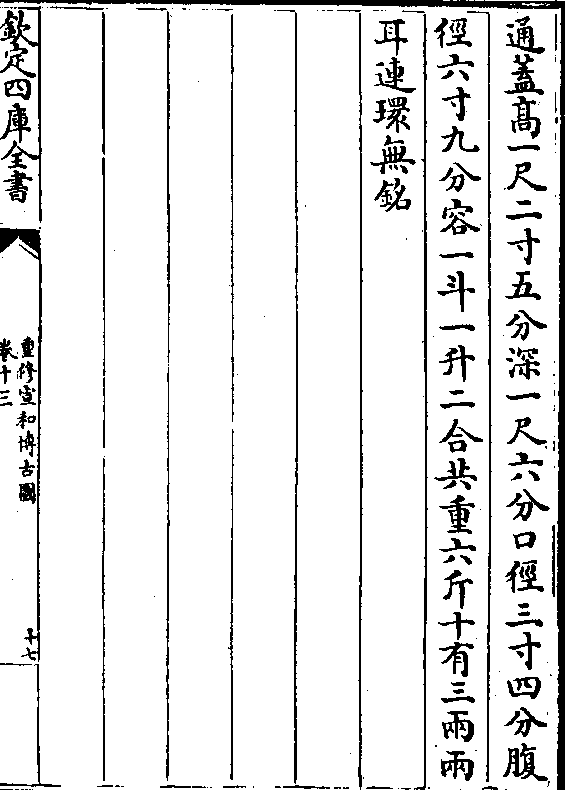 通蓋髙一尺二寸五分深一尺六分口徑三寸四分腹
徑六寸九分容一斗一升二合共重六斤十有三兩兩
耳連環無銘
欽定四庫全書
重修宣和博古圖
卷十三
十七